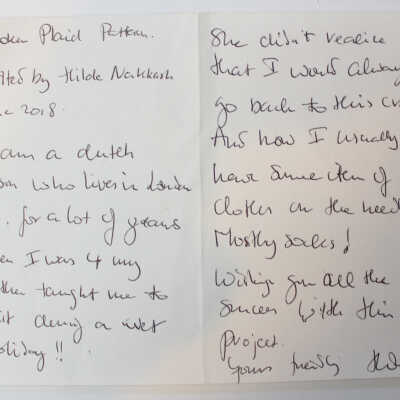 oken Plaid Pattern.
ted by Hilde Nakkash
e 2018.
am a dutch
who lives in London
for a lot of years
en I was 4 my
ther taught me to
it during a wet
oliday !!
She didn't realize
that I would alway
go back to this cr
And how I usually
have some item of
clothes on the need
Mostly socks!
Wishing you all the
success with this
project.
Yours